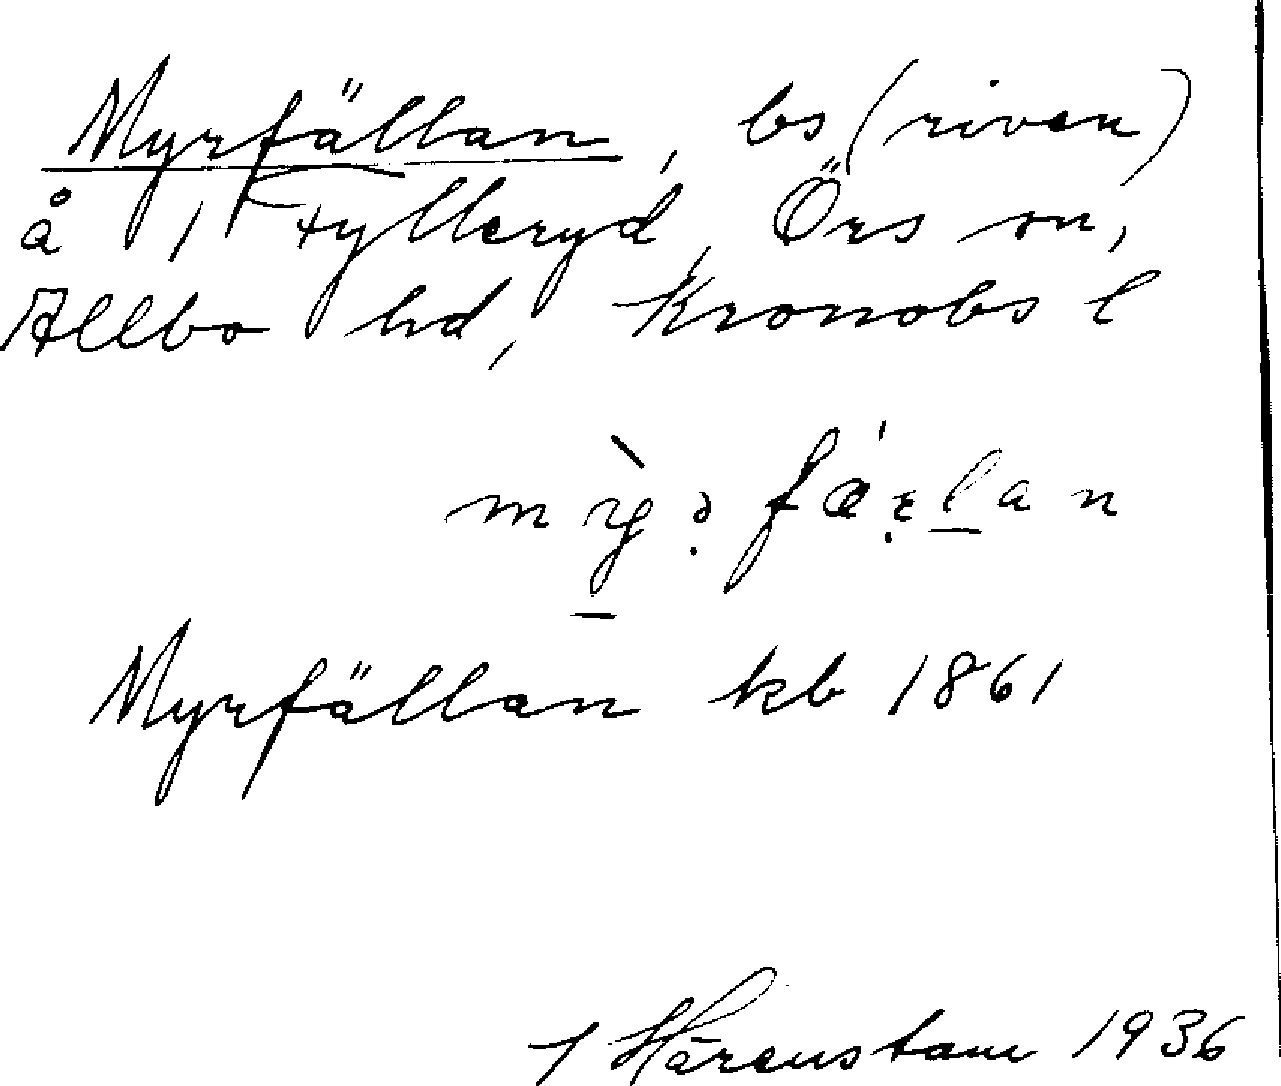 Myrfällan, bs (riven)
å 1 Fylleryd, Örs sn,
Allbo hd, Kronobs l
Myrfällan kb 1861
Härenstam 1936